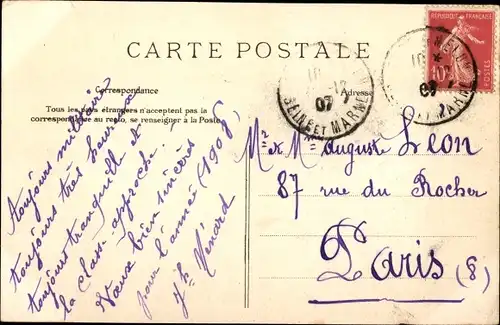 CARTE POSTALE
Correspondance
Tous les pays étrangers n'acceptent pas la
correspondance au recto, se renseigner à la Poste
Adresse
toujours militaire
toujours très heureux
toujours tranquille et
la classe approche.
Vœux bien sincères
pour l'année (1908)
Jh Menard
Mr et Mme Auguste Leon
87 rue du Rocher
Paris (8)
REPUBLIQUE FRANÇAISE
10c
POSTES
07
SEINE ET MARNE
MELUN
07
ET MARNE